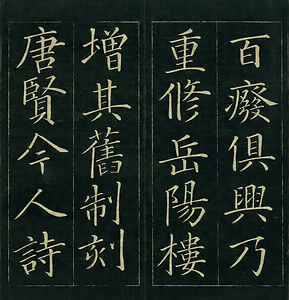 百癈俱興乃
重修岳陽樓
增其舊制刻
唐賢今人詩